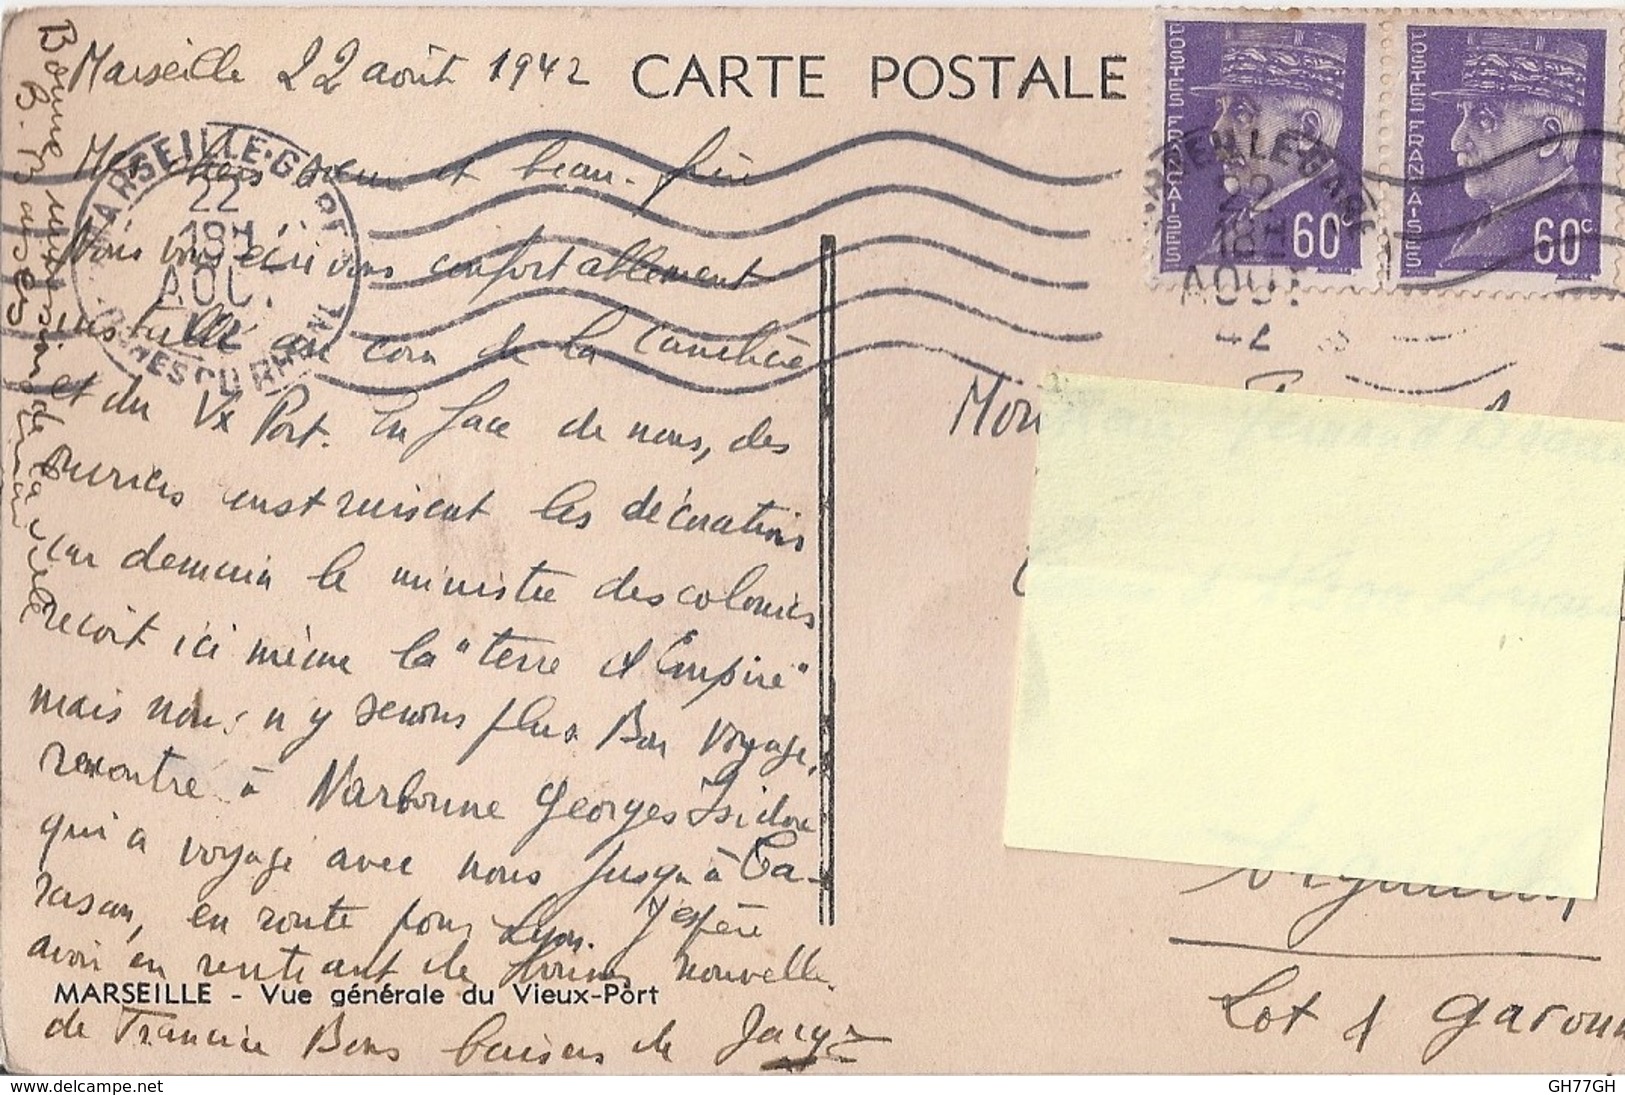 Marseille 22 août 1942
CARTE POSTALE
POSTES FRANÇAISES
60c
POSTES FRANÇAISES
60c
MARSEILLE-GARE
22
18H
AOU.
42
BCHES DU RHONE
MARSEILLE-GARE
22
18H
AOUT
42
Mes chers soeur et beau-frère
Nous vous écrivons confortablement
installé au coin de la Canebière
et du Vx Port. En face de nous, des
ouvriers construisent les décorations
car demain le ministre des colonies
recoit ici même la "terre d'Empire"
mais nous n'y serons plus Bon voyage,
rencontré à Narbonne Georges Isidore
qui a voyagé avec nous jusqu'à Ta-
rascon, en route pour Lyon. J'espère
avoir en rentrant de bonnes nouvelles
MARSEILLE - Vue générale du Vieux-Port
de Francine Bons baisers de Jacq
Bonne de la
B. Baisers
Lot & Garonn
GH77GH